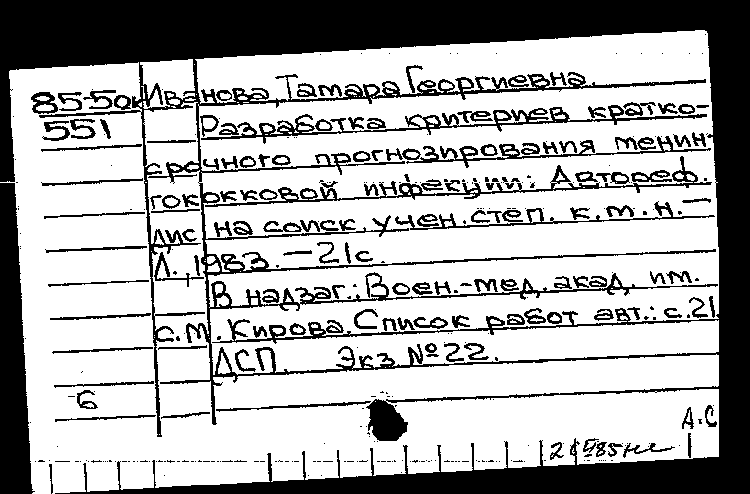 85-5ок Иванова, Тамара Георгиевна.
551 Разработка критериев кратко-
срочного прогнозирования менин-
гококковой инфекции: Автореф.
дис на соиск. учен. степ. к.м.н. —
Л., 1983. — 21с.
В надзаг.: Воен.-мед. акад. им.
С.М. Кирова. Список работ авт.: с.21.
ДСП. Экз №22.
6
А.С